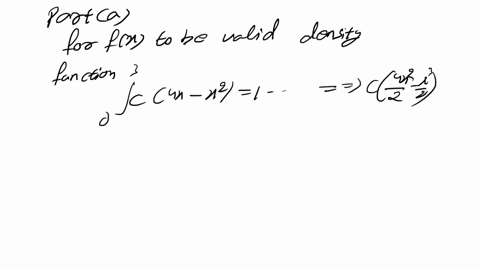 Part(a)
for f(x) to be valid density
function
3
∫ C (4x - x²) = 1 - - ==> C(4x²/2 - x³/3)
0